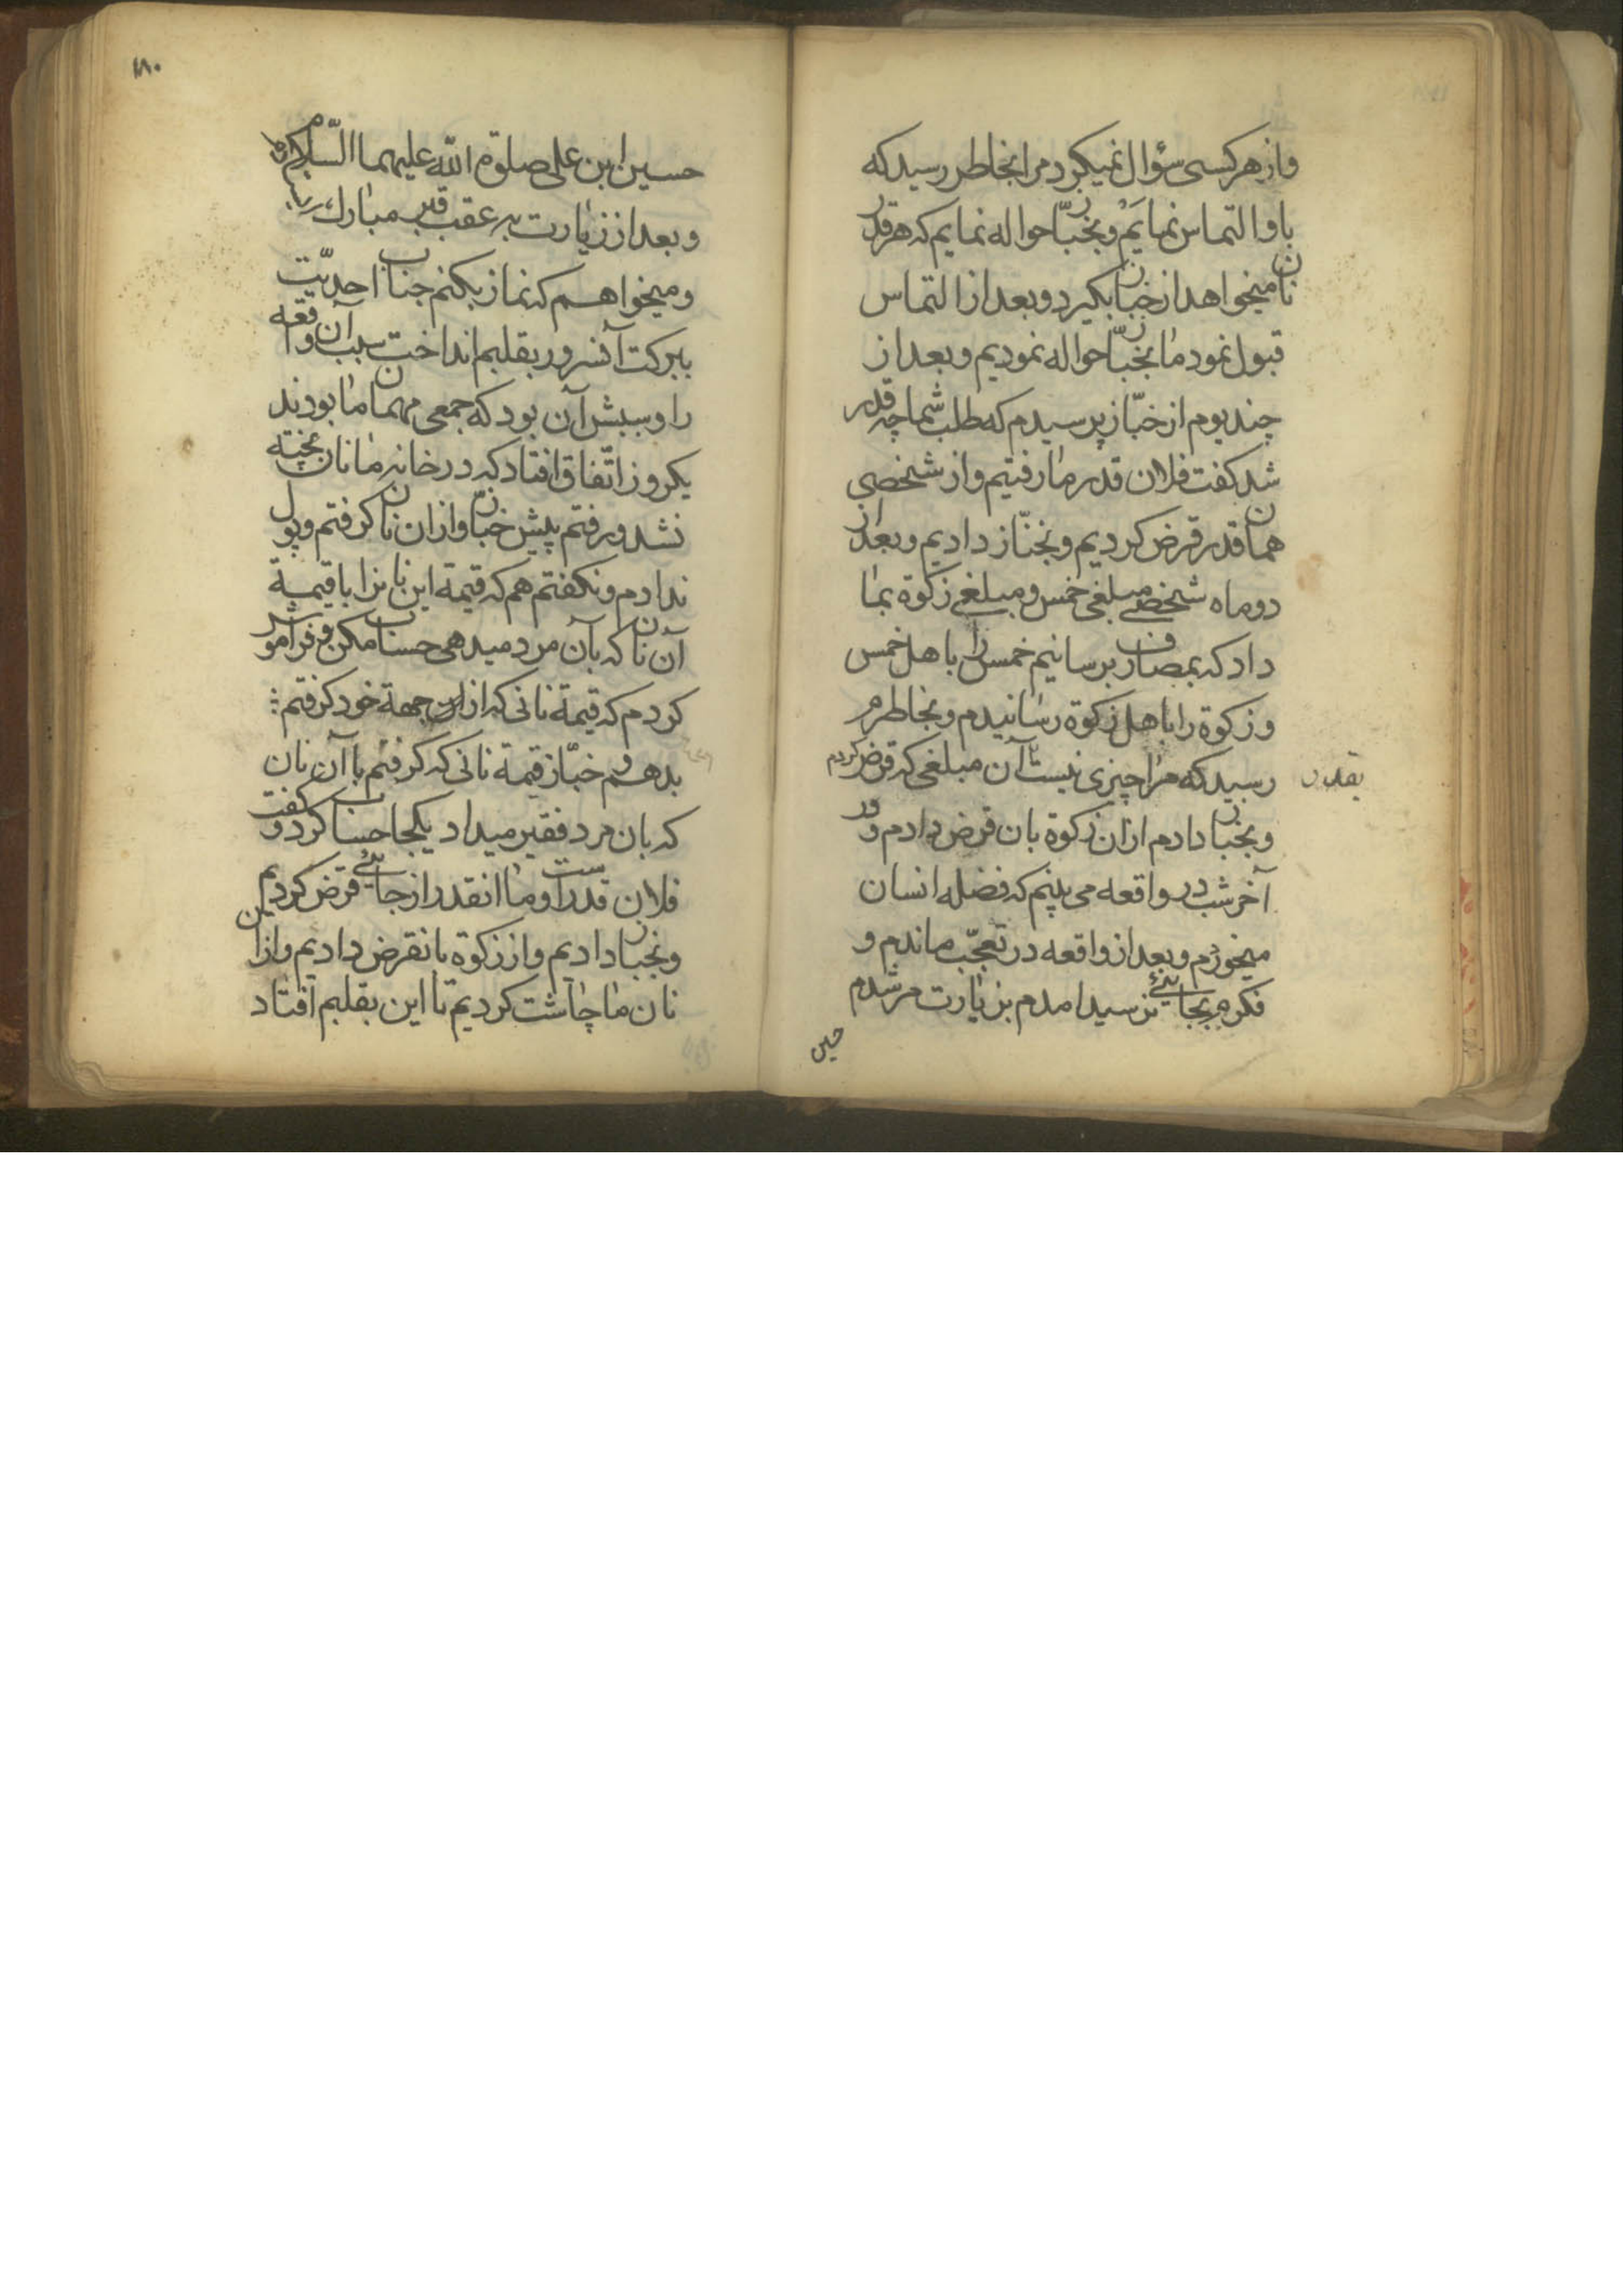 و از هر کسی سؤال نمیکرد مرا بخاطر رسید که
باو التماس نمایم و بخبّاز حواله نمایم که هر قدر
نان میخواهد از خباز بکیرد و بعد از التماس
قبول نمود ما بخبّاز حواله نمودیم و بعد از
چند یوم از خبّاز پرسیدم که طلب شما چه قدر
شد کفت فلان قدر ما رفتیم و از شخصی
همان قدر قرض کردیم و بخبّاز دادیم و بعد از
دو ماه شخصی مبلغی خمس و مبلغی زکوة بما
داد که بمصارف برسانیم خمس را باهل خمس
و زکوة را باهل زکوة رسانیدم و بخاطرم
رسید که مرا چیزی نیست تا آن مبلغی که قرض کردم
بقدر
و بخباز دادم ازان زکوة بان قرض دادم و در
آخر شب در واقعه می بینم که فضله انسان
میخورم و بعد از واقعه در تعجّب ماندم و
فکرم بجائی نرسید امدم بزیارت مرشدم
حسین
۱۸۰
حسین ابن علی صلوة الله علیهما السّلام
و بعد از زیارت به عقب قبر مبارک
و میخواهم که نماز بکنم جناب احدیّت
ببرکت آنسرور بقلبم انداخت سبب آن واقعه
را و سببش آن بود که جمعی مهمان ما بودند
یکروز اتّفاق افتاد که در خانه ما نان پخته
نشد و رفتم پیش خبّاز و ازان نان کرفتم و پول
ندادم و نکفتم هم که قیمة این نانرا با قیمة
آن نان که بآن مرد میدهی حساب مکن و فراموش
کردم که قیمة نانی که از این جهة خود کرفتم
بدهم و خبّاز قیمة نانی که کرفتم با آن نان
که بان مرد فقیر میداد یکجا حساب کرد و کفت
فلان قدر است و ما انقدر از جائی قرض کردیم
و بخباز دادیم و از زکوة بانقرض دادیم و ازان
نان ما چاشت کردیم تا این بقلبم افتاد